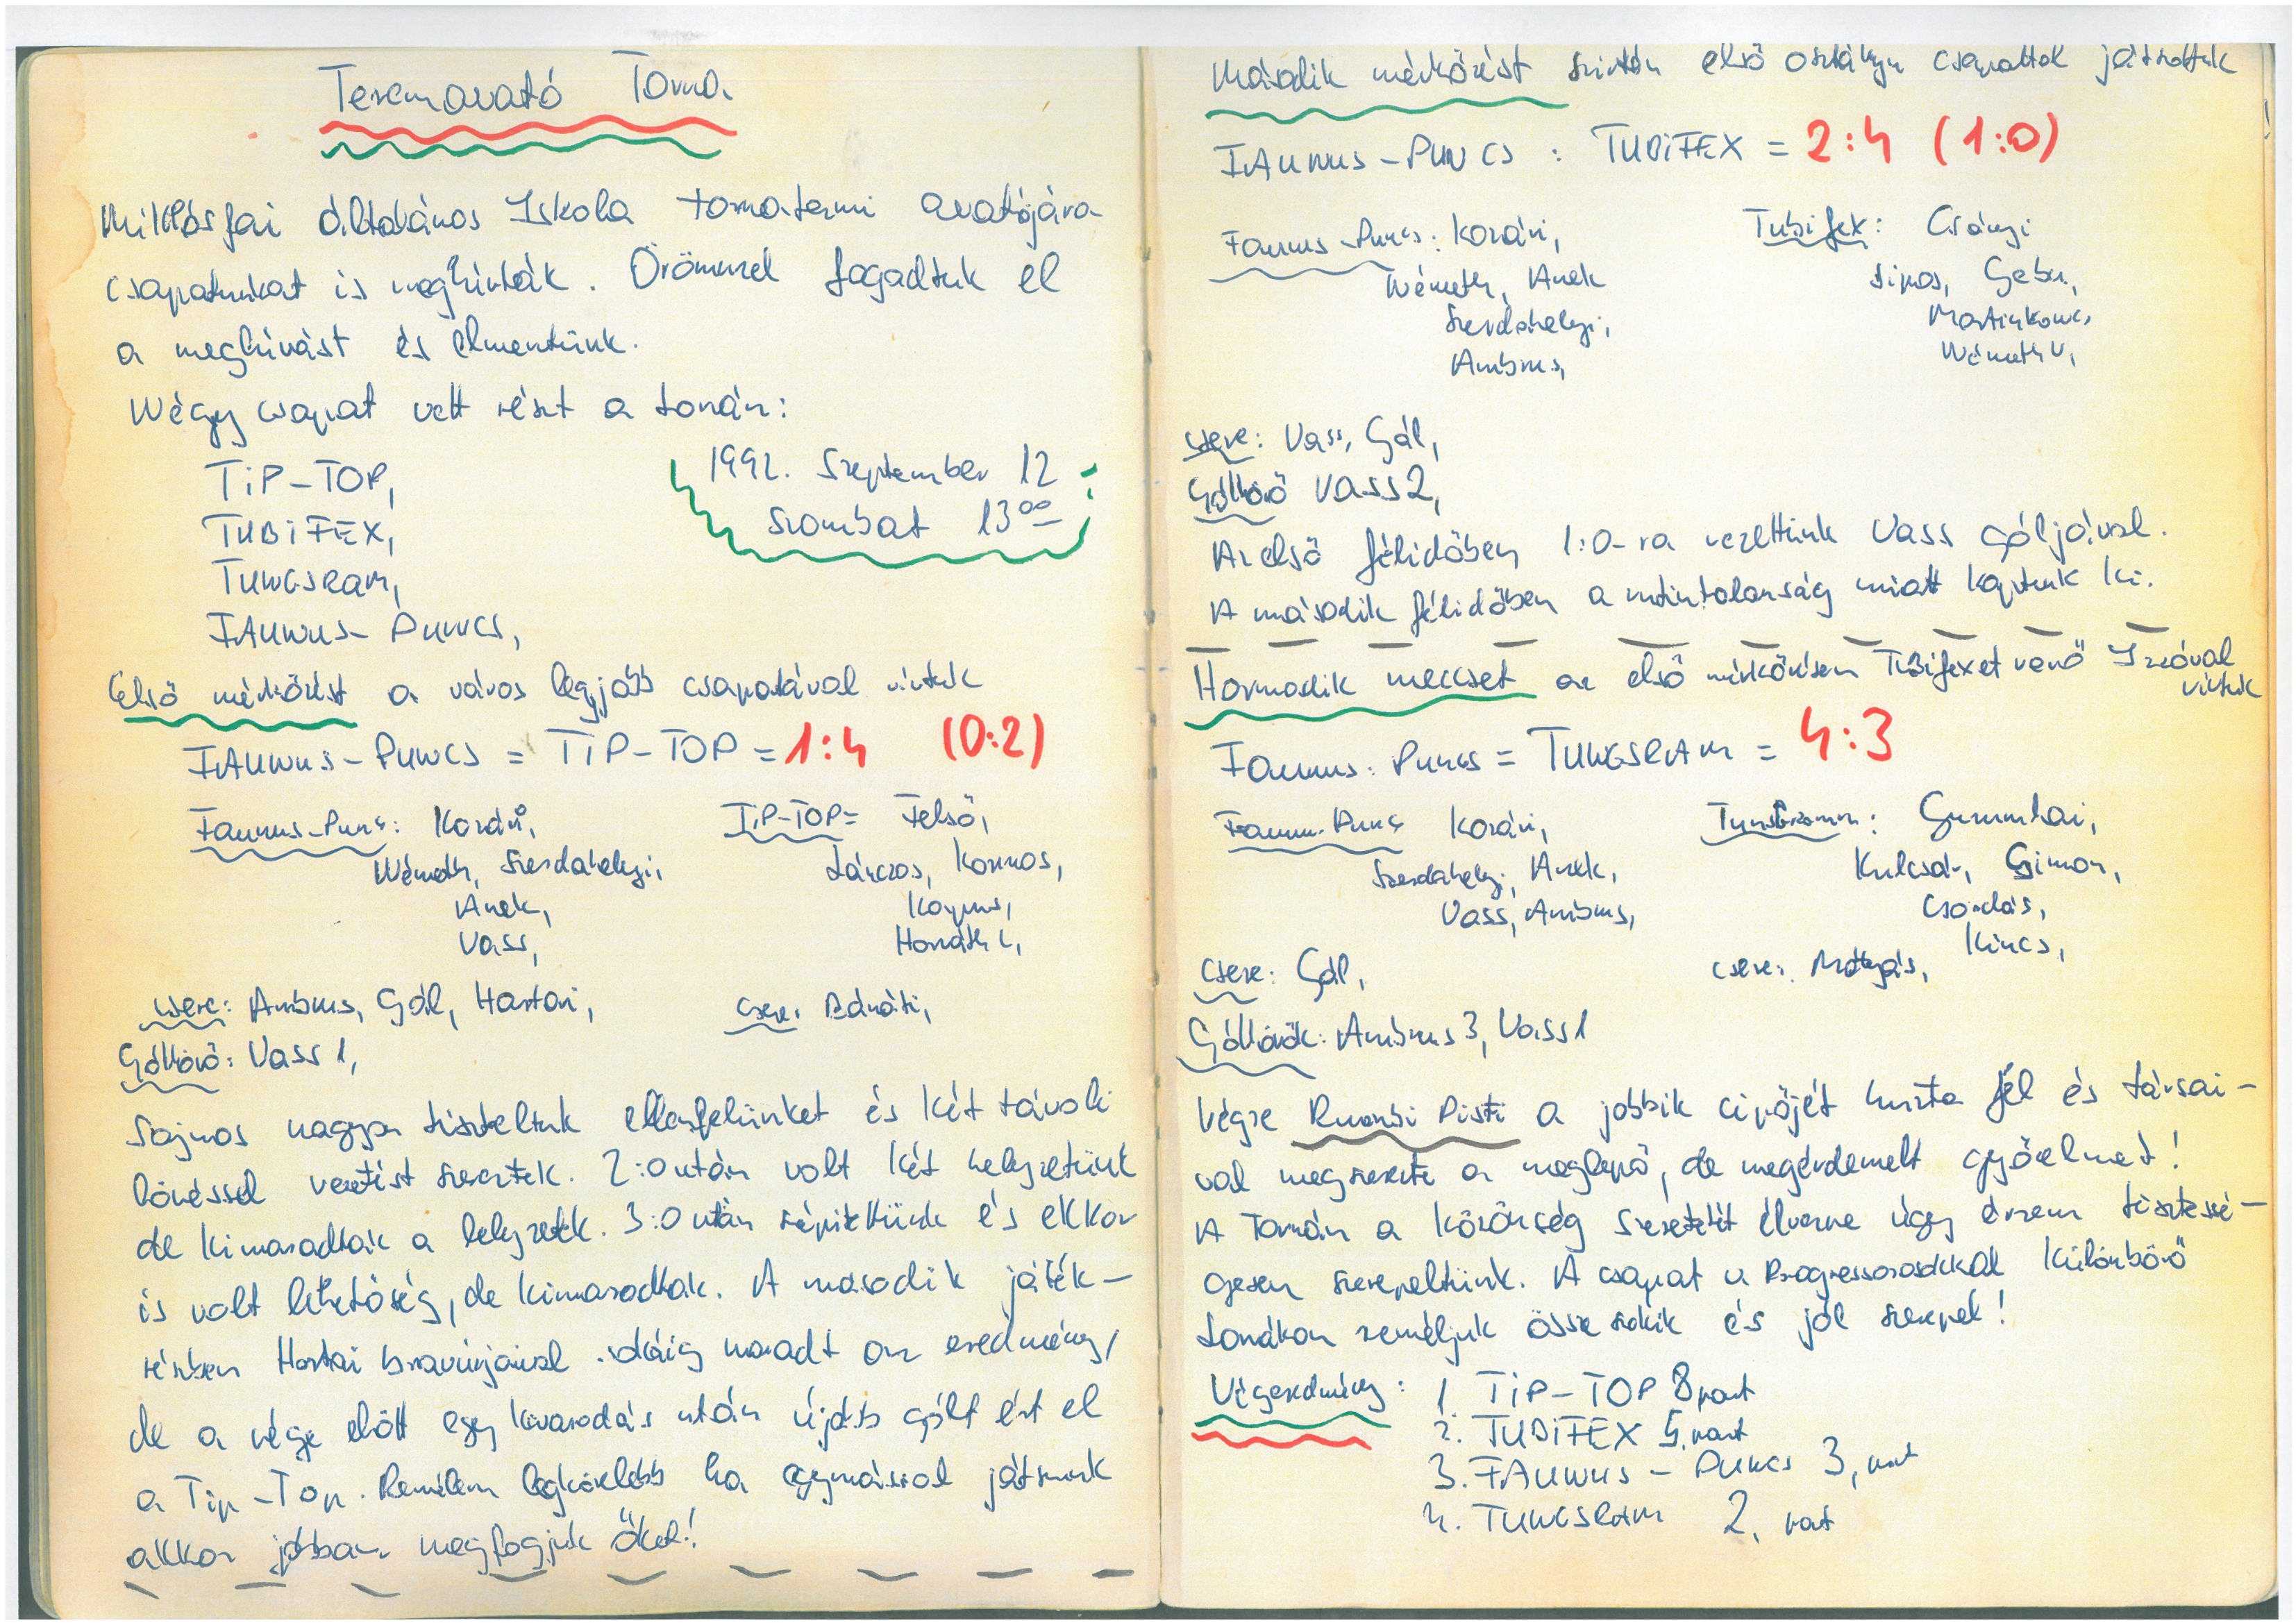 Teremavató Torna
Miklósfai Általános Iskola tornatermi avatójára
csapatunkat is meghívták. Örömmel fogadtuk el
a meghívást és elmentünk.
Négy csapat vett részt a tornán:
TIP-TOP,
TUBIFEX,
TUNGSRAM,
FAUNUS-PUNCS,
1992. Szeptember 12
szombat 13⁰⁰
Első mérkőzést a város legjobb csapatával vívtuk
FAUNUS-PUNCS = TIP-TOP = 1:4 (0:2)
Faunus-Puncs: Kozári,
Németh, Szerdahelyi,
Anek,
Vass,
TIP-TOP= Felső,
Lánczos, Kozmos,
Horváth L,
csere: Ambrus, Gál, Hartai,
csere:
Góllövő: Vass 1,
Sajnos nagyon tiszteltük ellenfelünket és két távoli
lövéssel vezetést szereztek. 2:0 után volt két helyzetünk
de kimaradtak a helyzetek. 3:0 után szépítettünk és ekkor
is volt lehetőség, de kimaradtak. A második játék-
részben Hartai bravúrjaival sokáig maradt az eredmény,
de a vége előtt egy kivárodás után újabb gólt ért el
a Tip-Top. Remélem legközelebb ha egymással játszunk
akkor jobban megfogjuk őket!
Második mérkőzést szintén első osztályu csapattal játszottuk
FAUNUS-PUNCS : TUBIFEX = 2:4 (1:0)
Faunus-Puncs: Kozári,
Németh, Anek
Szerdahelyi,
Ambrus,
Tubifex: Csányi
Sipos, Geber,
Martinkovics
Németh V,
csere: Vass, Gál,
Góllövő Vass 2,
Az első félidőben 1:0-ra vezettünk Vass góljával.
A második félidőben a rutintalanság miatt kaptunk ki.
Harmadik meccset az első mérkőzésen Tubifexet verő Izzóval
vívtuk
Faunus-Puncs = TUNGSRAM = 4:3
Faunus-Puncs Kozári,
Szerdahelyi, Anek,
Vass, Ambrus,
Tungsram:
Kulcsár, Simon,
Csordás,
Kincs,
csere: Gál,
csere: Mátyás,
Góllövők: Ambrus 3, Vass 1
Végre Pisti a jobbik cipőjét húzta fel és társai-
val megszerezte a meglepő, de megérdemelt győzelmet!
A Tornán a közönség szeretetét élvezve úgy érzem tisztessé-
gesen szerepeltünk. A csapat a Progresszorosokkal különböző
tornákon reméljük összeszokik és jól szerepel!
Végeredmény: 1 TIP-TOP 8 pont
2. TUBIFEX 5, pont
3. FAUNUS - PUNCS 3, pont
4. TUNGSRAM 2, pont